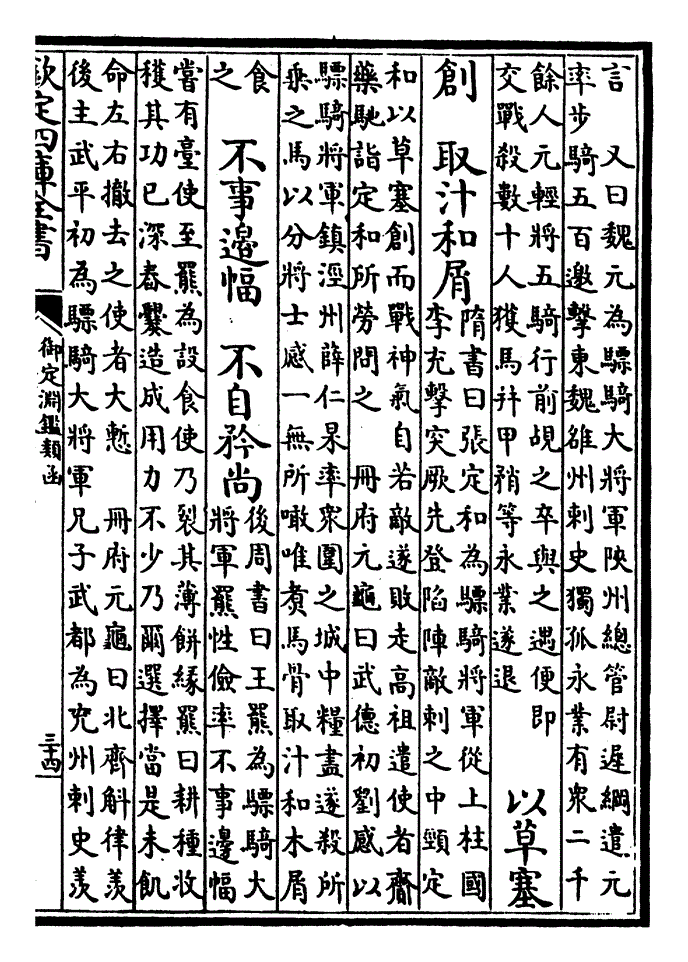 言　又曰魏元為驃騎大將軍陝州總管尉遲綱遣元
率步騎五百邀擊東魏雒州刺史獨孤永業有衆二千
餘人元輕將五騎行前覘之卒與之遇便即
交戰殺數十人獲馬幷甲矟等永業遂退
以草塞
創　取汁和屑
隋書曰張定和為驃騎將軍從上柱國
李充擊突厥先登陷陣敵刺之中頸定
和以草塞創而戰神氣自若敵遂敗走高祖遣使者齎
藥馳詣定和所勞問之　冊府元龜曰武德初劉感以
驃騎將軍鎮涇州薛仁杲率衆圍之城中糧盡遂殺所
乘之馬以分將士感一無所噉唯煑馬骨取汁和木屑
食
之
不事邉幅　不自矜尚
後周書曰王羆為驃騎大
將軍羆性儉率不事邉幅
嘗有臺使至羆為設食使乃裂其薄餅緣羆曰耕種收
穫其功已深舂爨造成用力不少乃爾選擇當是未飢
命左右撤去之使者大慙　冊府元龜曰北齊斛律羨
後主武平初為驃騎大將軍兄子武都為兖州刺史羨
欽定四庫全書
御定淵鑑類函
三十四